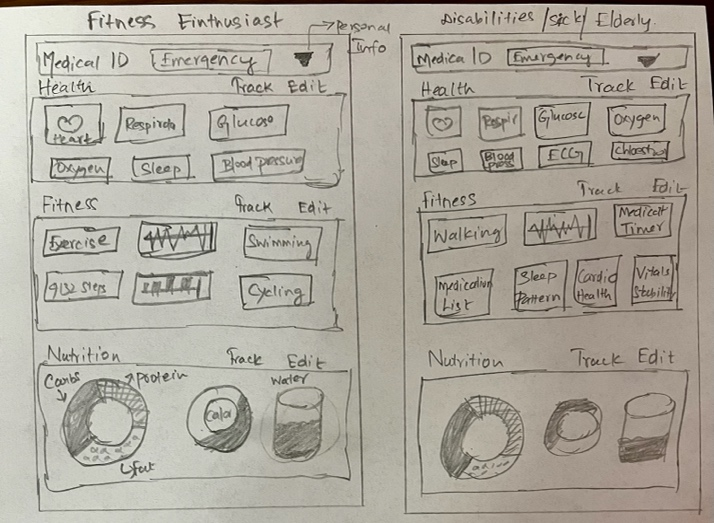 Fitness Einthusiast
Personal
Info
Medical ID Emergency
Health Track Edit
Heart Respirato Glucose
Oxygen Sleep Blood pressure
Fitness Track Edit
Exercise Swimming
9132 Steps Cycling
Nutrition Track Edit
Carbs protein Water
Calo
fat
Disabilities/sick/Elderly.
Medical ID Emergency
Health Track Edit
Respir Glucose Oxygen
Slep Blood press ECG
Fitness Track Edit
Walking Timer
List Sleep Pattern Cardio Health Vitals Stability
Nutrition Track Edit